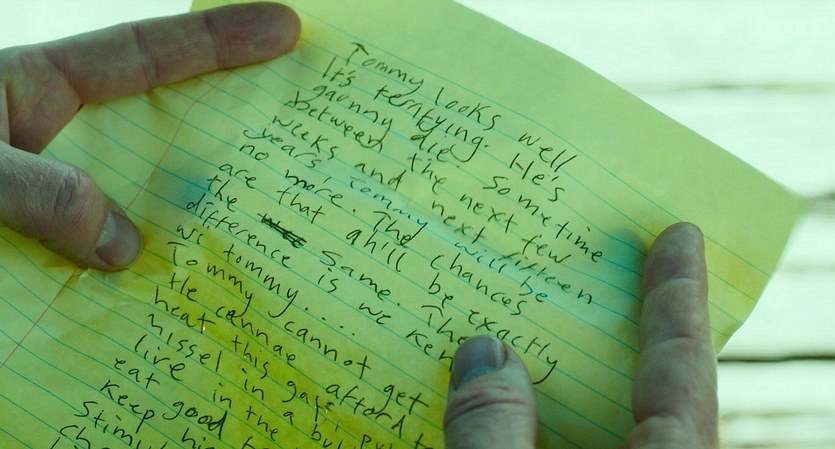 Tommy looks well
It's terrifying. He's
gaunny die sometime
between the next few
weeks and next fifteen
years. Tommy will be
no more. The chances
are that ah'll be exactly
the same. The
difference is we ken
wi tommy....
Tommy cannot get
He cannae afford to
heat this gaff, put
hissel in a
live in the
eat good
keep
Stimul